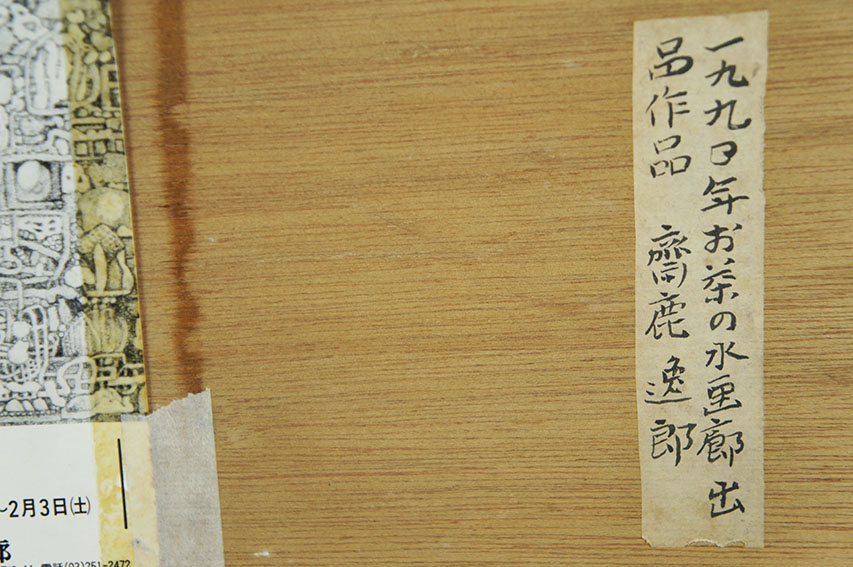 一九九〇年お茶の水画廊出
品作品 齋鹿逸郎
～2月3日(土)
廊
電話(03)251-2472